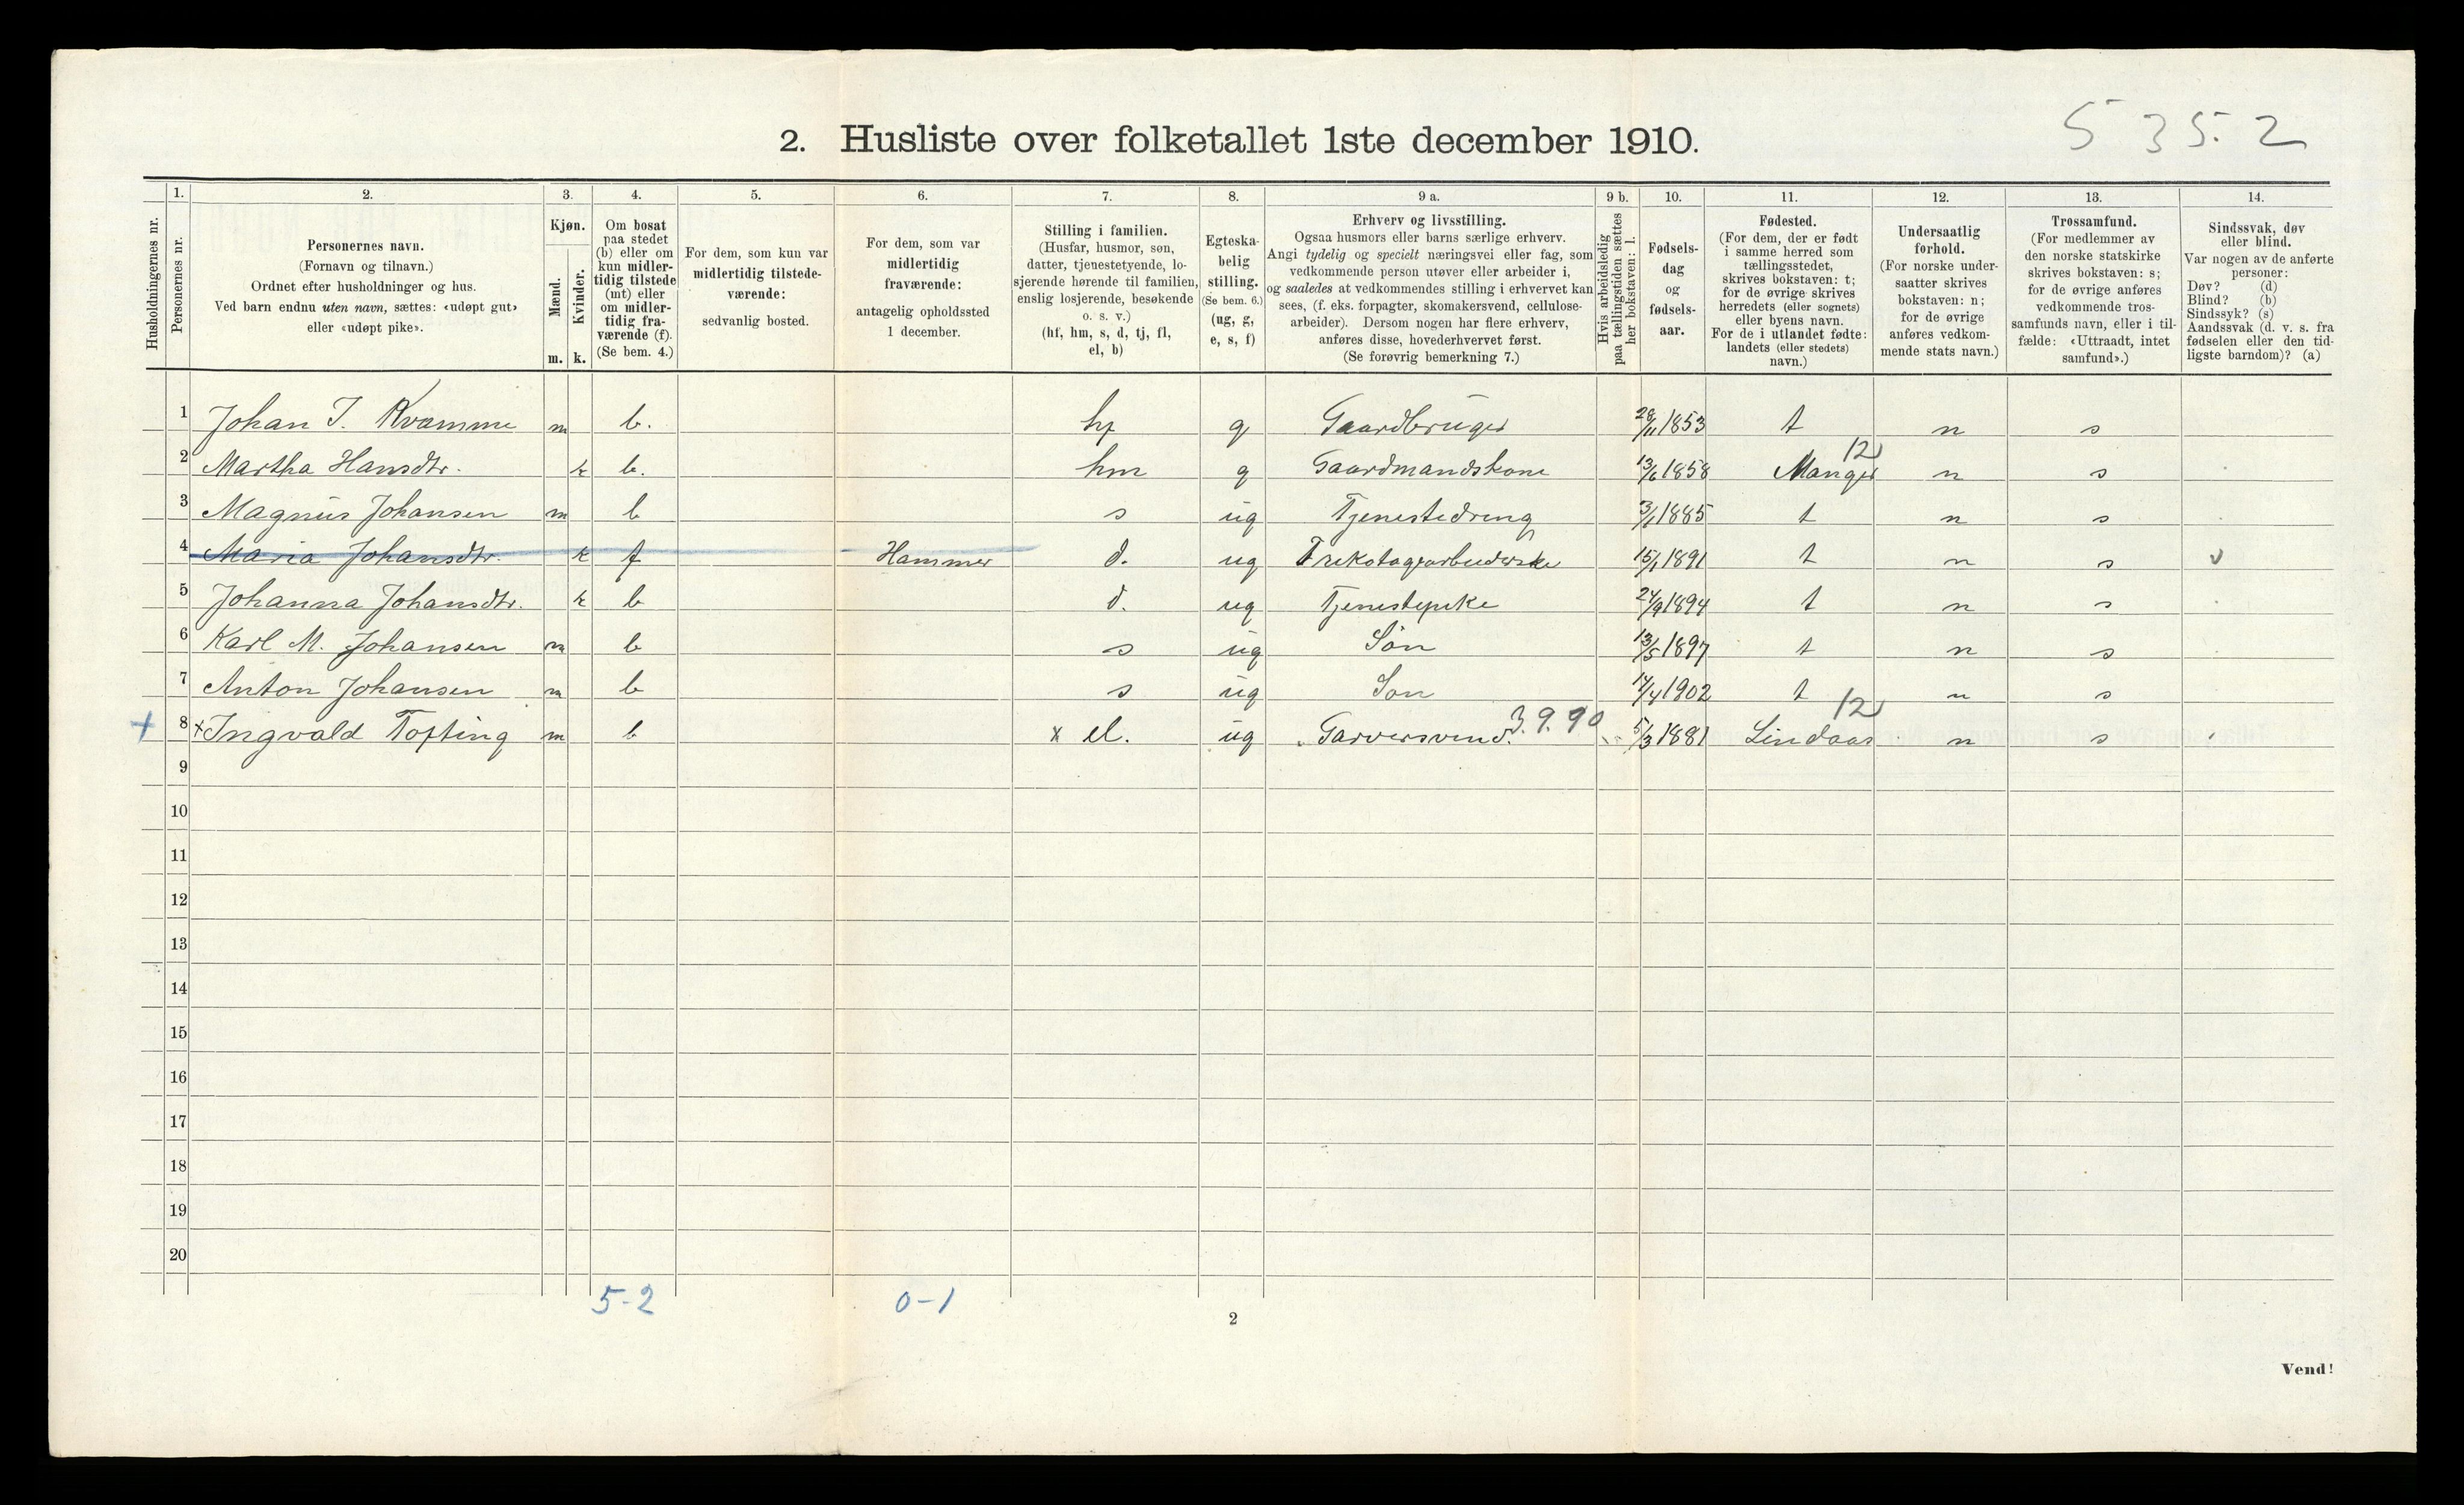 5 3 5. 2
2. Husliste over folketallet 1ste december 1910.
Husholdningernes nr.
1.
Personernes nr.
2.
Personernes navn.
(Fornavn og tilnavn.)
Ordnet efter husholdninger og hus.
Ved barn endnu uten navn, sættes: «udøpt gut»
eller «udøpt pike».
3.
Kjøn.
Mænd.
Kvinder.
m. k.
4.
Om bosat
paa stedet
(b) eller om
kun midler-
tidig tilstede
(mt) eller
om midler-
tidig fra-
værende (f).
(Se bem. 4.)
5.
For dem, som kun var
midlertidig tilstede-
værende:
sedvanlig bosted.
6.
For dem, som var
midlertidig
fraværende:
antagelig opholdssted
1 december.
7.
Stilling i familien.
(Husfar, husmor, søn,
datter, tjenestetyende, lo-
sjerende hørende til familien,
enslig losjerende, besøkende
o. s. v.)
(hf, hm, s, d, tj, fl,
el, b)
8.
Egteska-
belig
stilling.
(Se bem. 6.)
(ug, g,
e, s, f)
9 a.
Erhverv og livsstilling.
Ogsaa husmors eller barns særlige erhverv.
Angi tydelig og specielt næringsvei eller fag, som
vedkommende person utøver eller arbeider i,
og saaledes at vedkommendes stilling i erhvervet kan
sees, (f. eks. forpagter, skomakersvend, cellulose-
arbeider). Dersom nogen har flere erhverv,
anføres disse, hovederhvervet først.
(Se forøvrig bemerkning 7.)
9 b.
Hvis arbeidsledig
paa tællingstiden sættes
her bokstaven: l.
10.
Fødsels-
dag
og
fødsels-
aar.
11.
Fødested.
(For dem, der er født
i samme herred som
tællingsstedet,
skrives bokstaven: t;
for de øvrige skrives
herredets (eller sognets)
eller byens navn.
For de i utlandet fødte:
landets (eller stedets)
navn.)
12.
Undersaatlig
forhold.
(For norske under-
saatter skrives
bokstaven: n;
for de øvrige
anføres vedkom-
mende stats navn.)
13.
Trossamfund.
(For medlemmer av
den norske statskirke
skrives bokstaven: s;
for de øvrige anføres
vedkommende tros-
samfunds navn, eller i til-
fælde: «Uttraadt, intet
samfund».)
14.
Sindssvak, døv
eller blind.
Var nogen av de anførte
personer:
Døv? (d)
Blind? (b)
Sindssyk? (s)
Aandssvak (d. v. s. fra
fødselen eller den tid-
ligste barndom)? (a)
1 Johan J. Kvamme m b. hf g Gaardbruger 28/11 1853 t n s
12
2 Martha Hansdtr. k b. hm g Gaardmandskone 13/6 1858 Manger n s
3 Magnus Johansen m b s ug Tjenestedreng 3/1 1885 t n s
4 Maria Johansdtr. k f Hammer d. ug Trikotagearbeiderske 15/1 1891 t n s v
5 Johanna Johansdtr. k b d. ug Tjenestepike 24/9 1894 t n s
6 Karl M. Johansen m b s ug Søn 13/5 1897 t n s
7 Anton Johansen m b s ug Søn 17/4 1902 t n s
3.9.90 12
+ 8 x Ingvald Tofting m b x el. ug Garversvend. 5/3 1881 Lindaas n s
9
10
11
12
13
14
15
16
17
18
19
20
5-2 0-1
2
Vend!